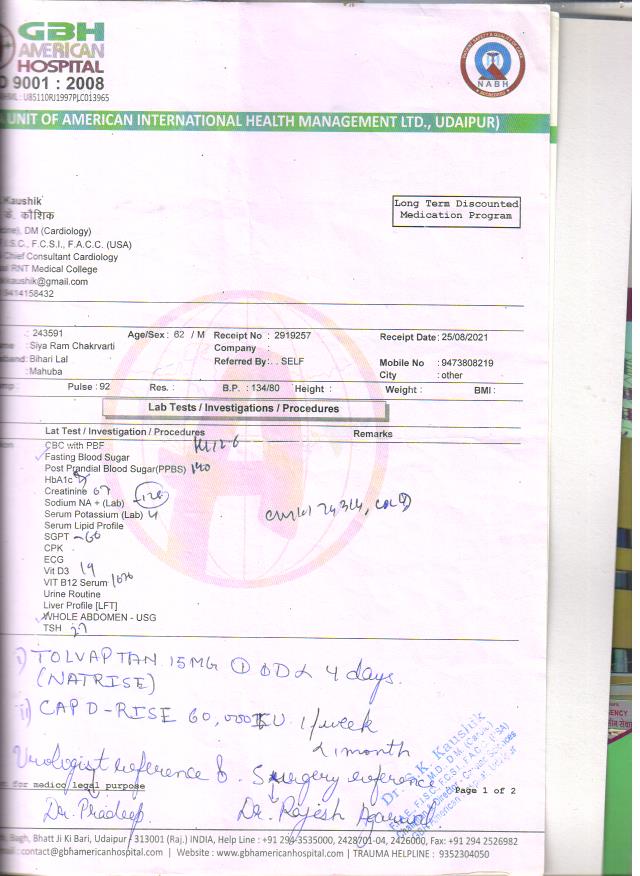 GBH
AMERICAN
HOSPITAL
9001 : 2008
U85110RJ1997PLC013965
NABH
UNIT OF AMERICAN INTERNATIONAL HEALTH MANAGEMENT LTD., UDAIPUR)
Kaushik
के. कौशिक
DM (Cardiology)
F.C.S.I., F.A.C.C. (USA)
Chief Consultant Cardiology
RNT Medical College
kaushik@gmail.com
9414158432
Long Term Discounted
Medication Program
: 243591 Age/Sex : 62 / M Receipt No : 2919257 Receipt Date : 25/08/2021
: Siya Ram Chakrvarti Company :
: Bihari Lal Referred By : . . SELF Mobile No : 9473808219
: Mahuba City : other
Pulse : 92 Res. : B.P. : 134/80 Height : Weight : BMI :
Lab Tests / Investigations / Procedures
Lat Test / Investigation / Procedures Remarks
CBC with PBF
Fasting Blood Sugar
Post Prandial Blood Sugar(PPBS) 140
HbA1c
Creatinine
Sodium NA + (Lab)
Serum Potassium (Lab) 4
Serum Lipid Profile
SGPT
CPK
ECG
Vit D3 19
VIT B12 Serum
Urine Routine
Liver Profile [LFT]
WHOLE ABDOMEN - USG
TSH
i) TOLVAPTAN 15MG ① OD x 4 days.
(NATRISE)
ii) CAP D-RISE 60,000 IU 1/week
x 1 month
Urologist reference & Surgery reference
for medico legal purpose
Page 1 of 2
Dr. Pradeep. Dr. Rajesh Agarwal
Dr. S.K. Kaushik
Bagh, Bhatt Ji Ki Bari, Udaipur - 313001 (Raj.) INDIA, Help Line : +91 294-3535000, 2428701-04, 2426000, Fax: +91 294 2526982
contact@gbhamericanhospital.com | Website : www.gbhamericanhospital.com | TRAUMA HELPLINE : 9352304050